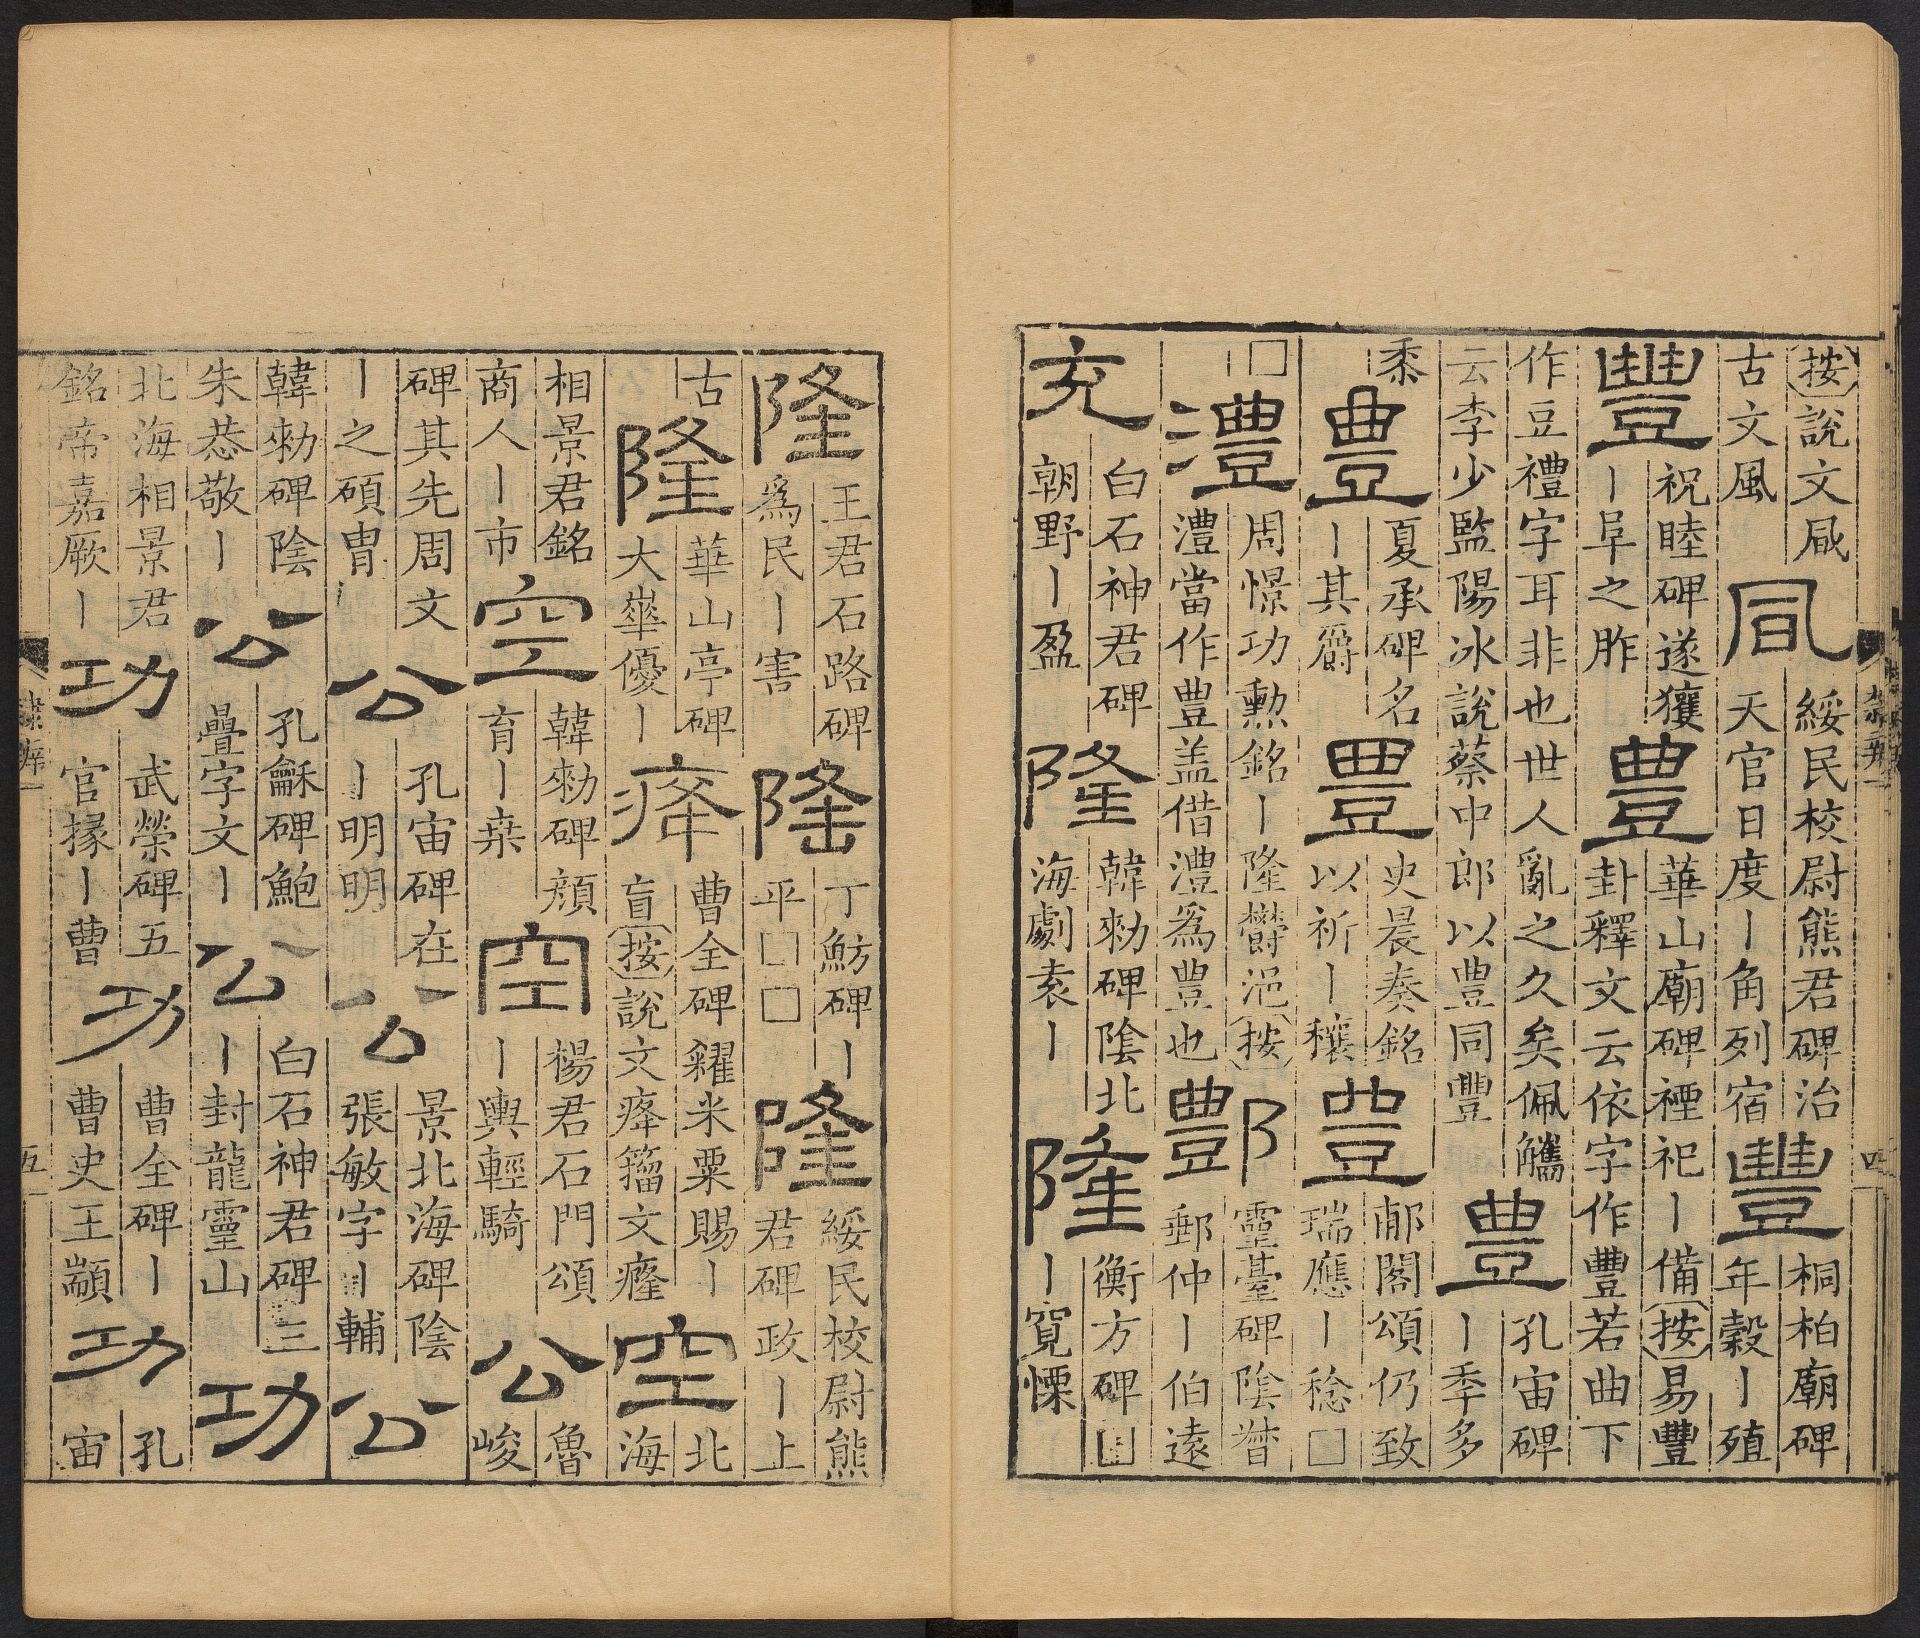 隸辨一
四
按說文凬
古文風
凬
綏民校尉熊君碑治
天官日度丨角列宿
豐
桐柏廟碑
年穀丨殖
豐
祝睦碑遂獲
丨阜之胙
豊
華山廟碑禋祀丨備按易豐
卦釋文云依字作豐若曲下
作豆禮字耳非也世人亂之久矣佩觿
云李少監陽冰說蔡中郎以豊同豐
豊
孔宙碑
丨秊多
黍
豊
夏承碑名
丨其爵
豊
史晨奏銘
以祈丨穰
豊
郙閣頌仍致
瑞應丨稔□
□
澧
周憬功勳銘丨隆鬱浥按
澧當作豊盖借澧爲豊也
酆
靈臺碑陰督
郵仲丨伯遠
充
白石神君碑
朝野丨盈
隆
韓勑碑陰北
海劇袁丨
隆
衡方碑□
丨寬慄
隆
王君石路碑
爲民丨害
隆
丁魴碑丨
平□□
隆
綏民校尉熊
君碑政丨上
古
隆
華山亭碑
大崋優丨
曹全碑糴米粟賜丨
盲按說文㾻籀文癃
空
北
海
相景君銘
商人丨市
空
韓勑碑顏
育丨桒
空
楊君石門頌
丨輿輕騎
公
魯
峻
碑其先周文
丨之碩冑
公
孔宙碑在
丨明明
公
景北海碑陰
張敏字丨輔
公
韓勑碑陰
朱恭敬丨
公
孔龢碑鮑
疊字文丨
公
白石神君碑三
丨封龍靈山
功
北海相景君
銘帝嘉厥丨
功
武榮碑五
官掾丨曹
功
曹全碑丨
曹史王顓
功
孔
宙
隸辨一
五